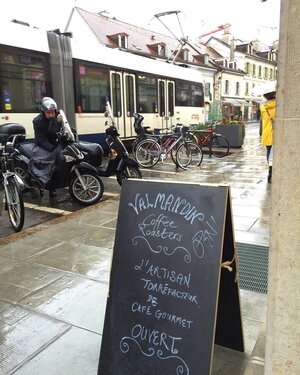 VALMANDIN
Coffee
Roasters
L'ARTISAN
TORRÉFACTEUR
DE
CAFÉ GOURMET
OUVERT